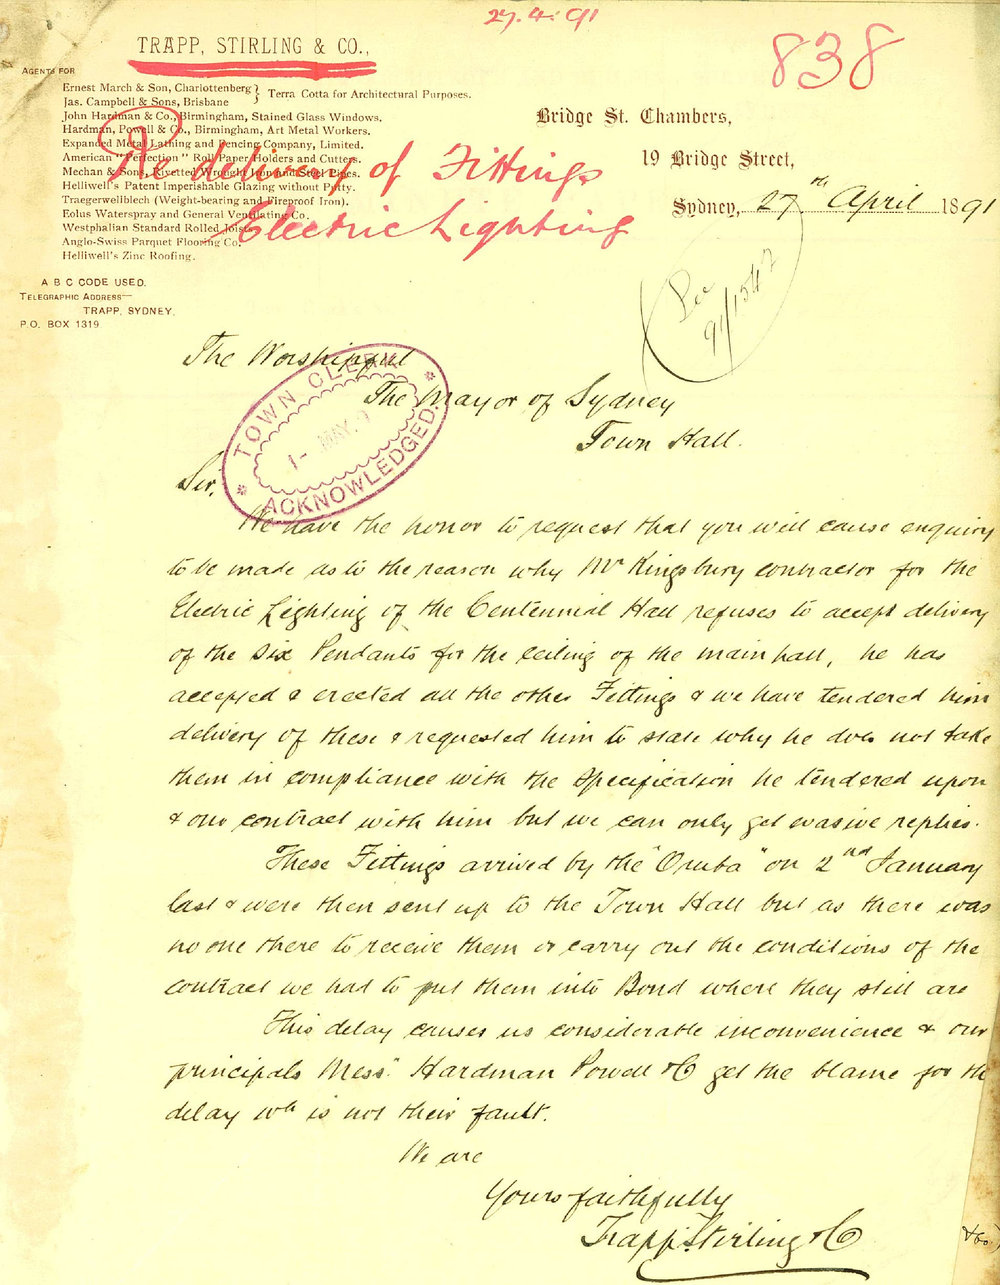 27.4.91
838
TRAPP, STIRLING & CO.,
AGENTS FOR
Ernest March & Son, Charlottenberg
Jas. Campbell & Sons, Brisbane
} Terra Cotta for Architectural Purposes.
John Hardman & Co., Birmingham, Stained Glass Windows.
Hardman, Powell & Co., Birmingham, Art Metal Workers.
Expanded Metal Lathing and Fencing Company, Limited.
American "Perfection" Roll Paper Holders and Cutters.
Mechan & Sons, Rivetted Wrought Iron and Steel Pipes.
Helliwell's Patent Imperishable Glazing without Putty.
Traegerwellblech (Weight-bearing and Fireproof Iron).
Eolus Waterspray and General Ventilating Co.
Westphalian Standard Rolled Joists
Anglo-Swiss Parquet Flooring Co.
Helliwell's Zinc Roofing.
A B C CODE USED.
TELEGRAPHIC ADDRESS—
TRAPP, SYDNEY.
P.O. BOX 1319
Re delivery of Fittings
Electric Lighting
Bridge St. Chambers,
19 Bridge Street,
Sydney, 27th April 1891
See
91/1547
The Worshipful
The Mayor of Sydney
Town Hall.
TOWN CLERK
1- MAY. 9
ACKNOWLEDGED.
Sir,
We have the honor to request that you will cause enquiry
to be made as to the reason why Mr Kingsbury contractor for the
Electric Lighting of the Centennial Hall refuses to accept delivery
of the six Pendants for the ceiling of the main hall, he has
accepted & erected all the other Fittings & we have tendered him
delivery of these & requested him to state why he does not take
them in compliance with the specification he tendered upon
& our contract with him but we can only get evasive replies.
These Fittings arrived by the "Oruba" on 2nd January
last & were then sent up to the Town Hall but as there was
no one there to receive them or carry out the conditions of the
contract we had to put them into Bond where they still are
This delay causes us considerable inconvenience & our
principals Mess" Hardman Powell & C get the blame for th
delay wh is not their fault.
We are
Yours faithfully
Trapp. Stirling & C
&Co)